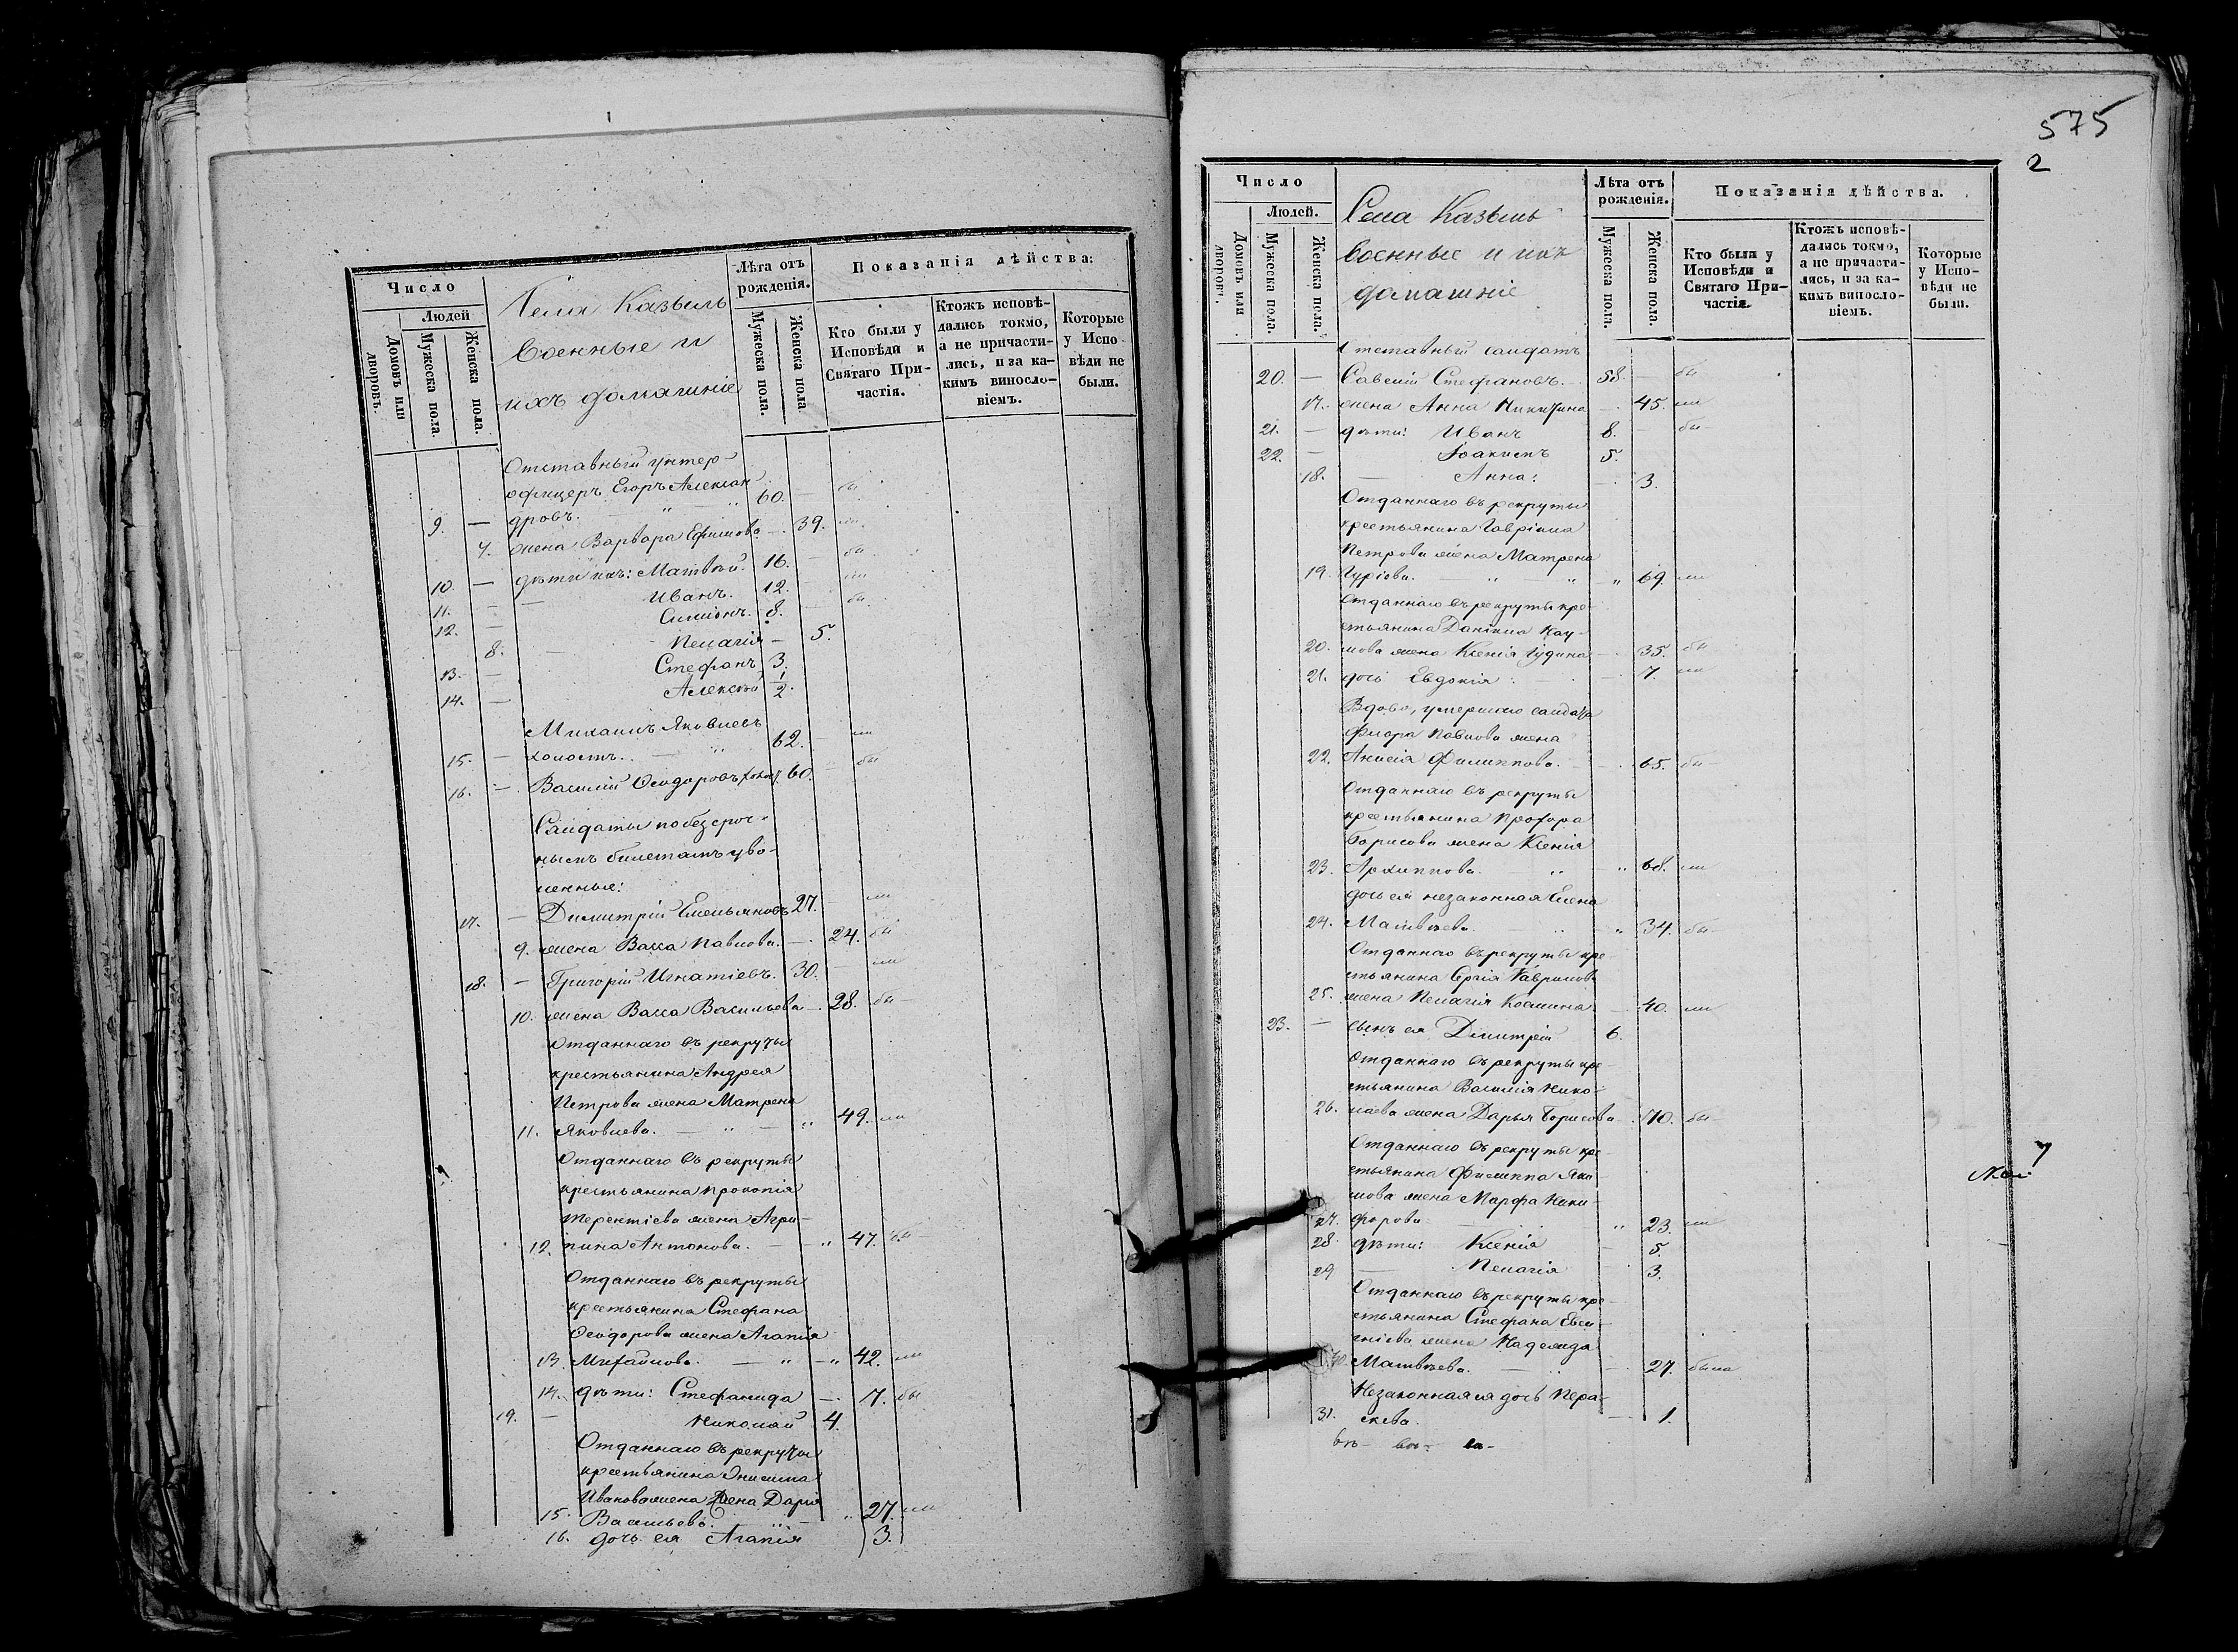 Число
Людей
Домовъ или дворовъ.
Мужеска пола.
Женска пола.
Села Казыль
военные и
ихъ домашніе
Лѣта отъ рожденія.
Мужеска пола.
Женска пола
Показанія дѣйства:
Кто были у Исповѣди и Святаго Причастія.
Ктожъ исповѣдались токмо, а не причастились, и за какимъ винословіемъ.
Которые у Исповѣди не были.
Отставный унтер-
офицеръ Егоръ Алексан
9. — дровъ. — " — " 60. — бы
7. жена Варвара Ефимова — . 39. ли
10. — дѣти ихъ: Матвѣй. 16. — бы
11. — — Иванъ. 12. — ли
12. — Симіонъ. 8. — бы
8. — Пелагія — 5.
13. — Стефанъ 3.
14. — Алексѣй 1/2.
Михаилъ Яковлевъ
15. — холостъ. — " 62. — ли
16. — Василій Ѳеодоровъ холост. 60. — бы
Салдаты по безсроч-
нымъ билетамъ уво-
ленные:
17. — Димитрій Емельяновъ 27. — ли
9. жена Васса Павлова. — . 24. бы
18. — Григорій Игнатіевъ. 30. — ли
10. жена Васса Васильева — . 28. бы —
Отданнаго въ рекруты
крестьянина Андрея
Петрова жена Матрена
11. Яковлева. — " — " 49. ли
Отданнаго въ рекруты
крестьянина Прокопія
Терентіева жена Агри-
12. пина Антонова. — " 47. бы —
Отданнаго въ рекруты
крестьянина Стефана
Ѳеодорова жена Агапія
13. Михайлова. — " — " 42. ли
14. дѣти: Стефанида — . 17. бы
19. — Николай 4.
Отданнаго въ рекруты
крестьянина Онисима
Иванова жена Дарія
15. Васильева. — " 27. ли
16. дочь ея Агапія 3.
575
2
Число
Людей.
Домовъ или дворовъ.
Мужеска пола.
Женска пола.
Села Казыль
военные и ихъ
домашніе
Лѣта отъ рожденія.
Мужеска пола.
Женска пола.
Показанія дѣйства.
Кто были у Исповѣди и Святаго Причастія.
Ктожъ исповѣдались токмо, а не причастились, и за какимъ винословіемъ.
Которые у Исповѣди не были.
Отставный салдатъ
20. — Савелій Стефановъ. 58. — бы
17. жена Анна Никитина — . 45. ли
21. — дѣти: Иванъ 8. — бы —
22. — Іоакимъ 5.
18. — Анна: — . 3.
Отданнаго въ рекруты
крестьянина Гавріила
Петрова жена Матрена
19. Гуріева. — " — " " 69. ли
Отданнаго въ рекруты кре-
стьянина Даніила Нау-
20. мова жена Ксенія Іудина — . 35. бы
21. дочь Евдокія : — . 7. ли
Вдова, умершаго салдата
Флора Павлова жена
22. Анисія Филиппова. — . 65. бы —
Отданнаго въ рекруты
крестьянина Прохора
Борисова жена Ксенія
23. Архиппова. " " 68. ли
дочь ея незаконная Елена
24. Матвѣева. — " — " 34. бы —
Отданнаго въ рекруты кре-
стьянина Сергія Гаврилова
25. жена Пелагія Козмина — 40. ли
23. — сынъ ея Димитрій 6.
Отданнаго въ рекруты кре-
стьянина Василія Нико-
26. лаева жена Дарья Борисова . 70. бы —
Отданнаго въ рекруты кре-
стьянина Филиппа Яки
мова жена Марфа Ники-
27. форова. — " 23. ли
28. дѣти: Ксенія — 5.
29 — Пелагія — 3.
Отданнаго въ рекруты кре-
стьянина Стефана Евсе-
гніева жена Надежда
30. Матвѣева. — " — . 27. была
Незаконная ея дочь Пера-
31. скева. — 1.
7